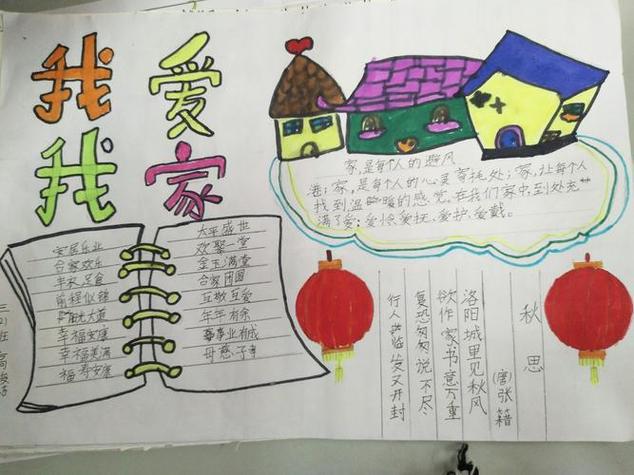 我爱
我家
家,是每个人的避风
港;家,是每个人的心灵寄托处;家,让每个人
找到温暖的感觉,在我们家中,到处充
满了爱:爱怜、爱抚、爱护、爱戴。
安居乐业
合家欢乐
丰衣足食
前程似锦
阳光大道
幸福安康
幸福美满
福寿安康
太平盛世
欢聚一堂
金玉满堂
合家团圆
互敬互爱
年年有余
事业有成
母慈子
秋思
(唐)张籍
洛阳城里见秋风
欲作家书意万重
复恐匆匆说不尽
行人临发又开封